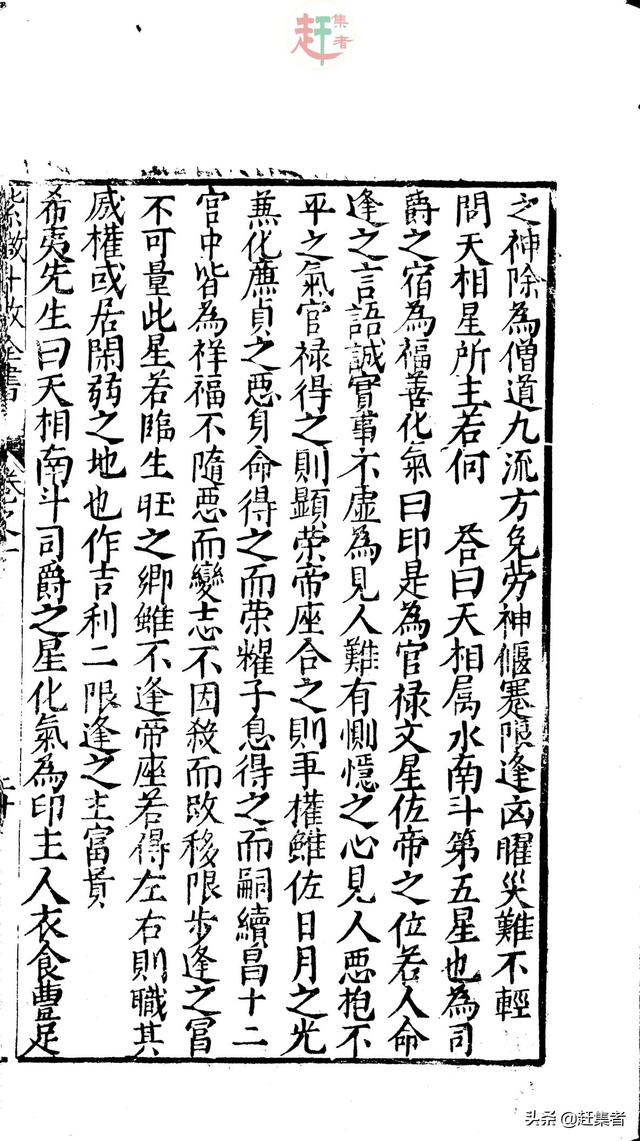 赶集者
之神除為僧道九流方免勞神偃蹇限逢凶曜災難不輕
問天相星所主若何 荅曰天相属水南斗第五星也為司
爵之宿為福善化氣曰印是為官禄文星佐帝之位若人命
逢之言語誠實事不虛為見人難有惻隱之心見人惡抱不
平之氣官禄得之則顯荣帝座合之則爭權雖佐日月之光
兼化廉貞之惡身命得之而荣耀子息得之而嗣續昌十二
宫中皆為祥福不隨惡而變志不因殺而改移限步逢之冨
不可量此星若臨生旺之鄉雖不逢帝座若得左右則職其
威權或居閑弱之地也作吉利二限逢之主富貴
希夷先生曰天相南斗司爵之星化氣為印主人衣食豊足
紫微斗数全書 卷之一
头条 @赶集者